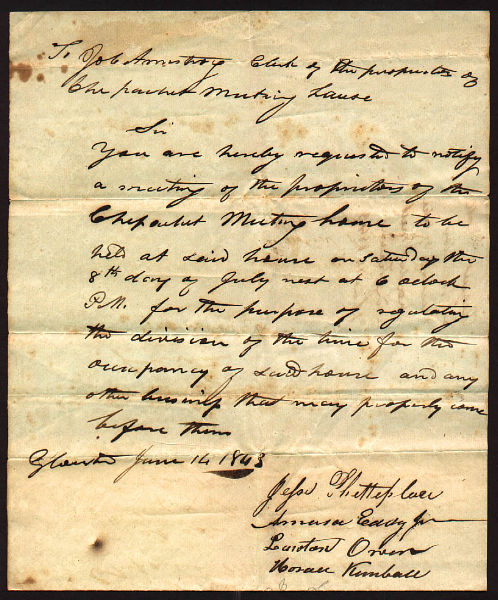 To Job Armstrong Clerk of the proprietors of
Chepachet Meeting house
Sir
You are hereby requested to notify
a meeting of the proprietors of the
Chepachet Meeting house to be
held at said house on saturday the
8th day of July next at 6 oclock
P.M. for the purpose of regulating
the division of the time for the
occupancy of said house and any
other business that may properly come
before them
Glocester June 14 1843
Jesse Thetteplace
Amasa Eddy Jr
Lawton Owen
Horace Kimball